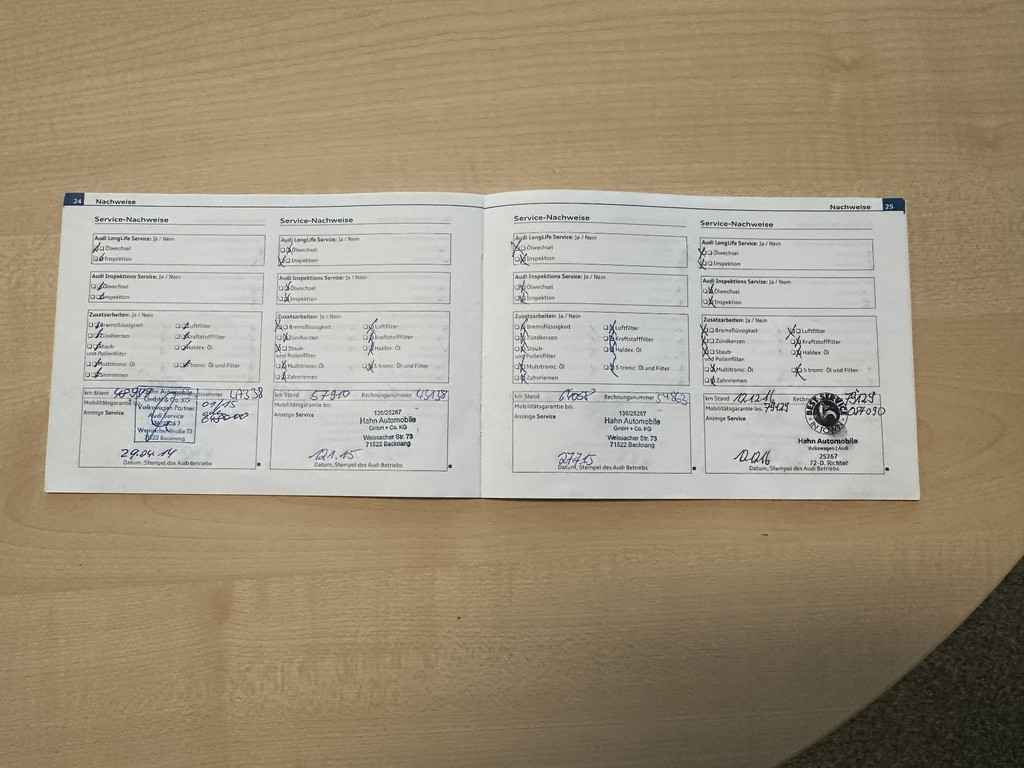 24 Nachweise
Service-Nachweise
Audi LongLife Service: Ja / Nein
Ölwechsel
Inspektion
Audi Inspektions Service: Ja / Nein
Ölwechsel
Inspektion
Zusatzarbeiten: Ja / Nein
Bremsflüssigkeit Luftfilter
Zündkerzen Kraftstofffilter
Staub- Haldex Öl
und Pollenfilter
Multitronic Öl S tronic Öl und Filter
Zahnriemen
km Stand 47338
Mobilitätsgarantie 01/15
Anzeige Service
Audi Service
71522 Backnang
29.04.14
Datum, Stempel des Audi Betriebs
Service-Nachweise
Audi LongLife Service: Ja / Nein
Ölwechsel
Inspektion
Audi Inspektions Service: Ja / Nein
Ölwechsel
Inspektion
Zusatzarbeiten: Ja / Nein
Bremsflüssigkeit Luftfilter
Zündkerzen Kraftstofffilter
Staub- Haldex Öl
und Pollenfilter
Multitronic Öl S tronic Öl und Filter
Zahnriemen
km Stand 57910 Rechnungsnummer 45138
Mobilitätsgarantie bis
Anzeige Service
136/25267
Hahn Automobile
GmbH + Co. KG
Weissacher Str. 73
71522 Backnang
12.1.15
Datum, Stempel des Audi Betriebs
Nachweise 25
Service-Nachweise
Audi LongLife Service: Ja / Nein
Ölwechsel
Inspektion
Audi Inspektions Service: Ja / Nein
Ölwechsel
Inspektion
Zusatzarbeiten: Ja / Nein
Bremsflüssigkeit Luftfilter
Zündkerzen Kraftstofffilter
Staub- Haldex Öl
und Pollenfilter
Multitronic Öl S tronic Öl und Filter
Zahnriemen
km Stand Rechnungsnummer 54862
Mobilitätsgarantie bis
Anzeige Service
136/25267
Hahn Automobile
GmbH + Co. KG
Weissacher Str. 73
71522 Backnang
27.7.15
Datum, Stempel des Audi Betriebs
Service-Nachweise
Audi LongLife Service: Ja / Nein
Ölwechsel
Inspektion
Audi Inspektions Service: Ja / Nein
Ölwechsel
Inspektion
Zusatzarbeiten: Ja / Nein
Bremsflüssigkeit Luftfilter
Zündkerzen Kraftstofffilter
Staub- Haldex Öl
und Pollenfilter
Multitronic Öl S tronic Öl und Filter
Zahnriemen
km Stand 79129
Mobilitätsgarantie bis 79129
Anzeige Service
Hahn Automobile
Volkswagen | Audi
25267
72-D. Richter
Datum, Stempel des Audi Betriebs